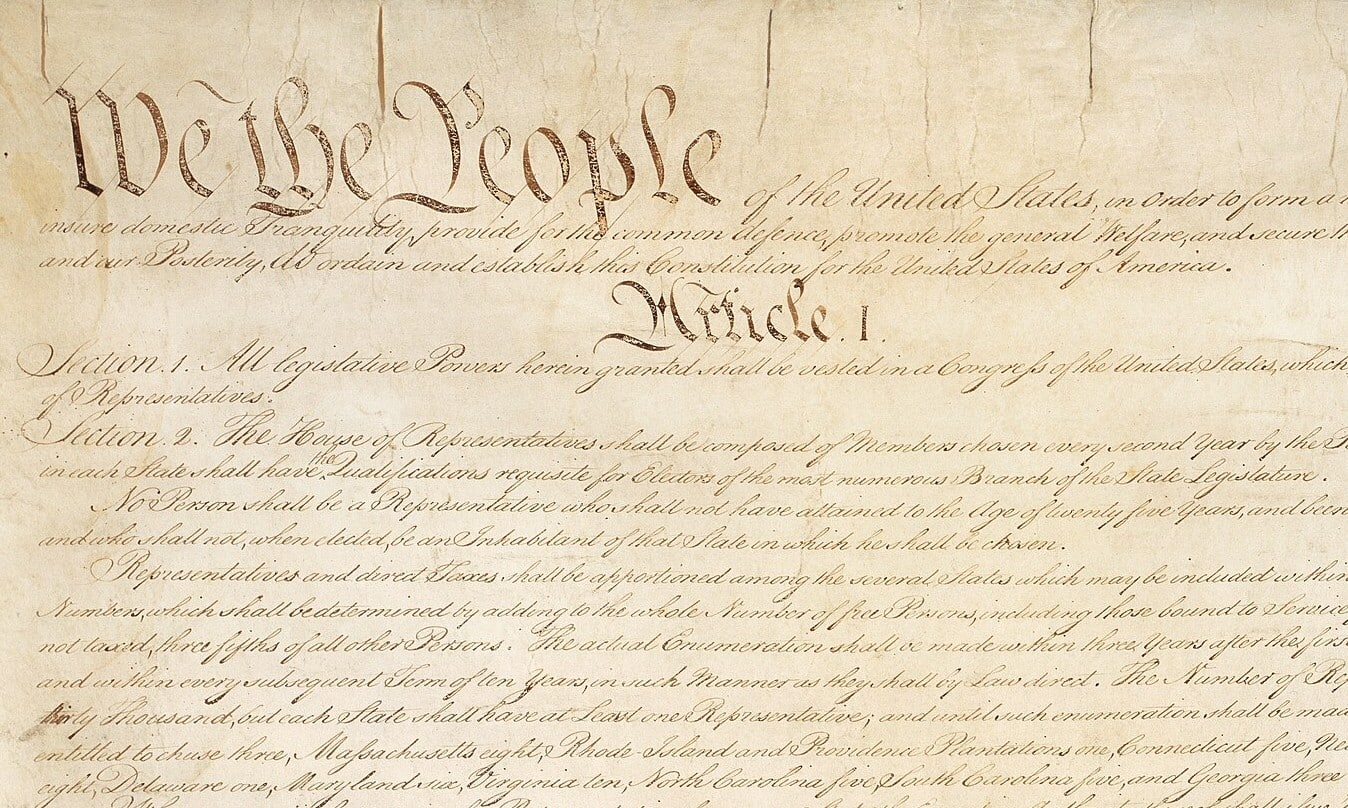 We the People of the United States, in Order to form a
insure domestic Tranquility, provide for the common defence, promote the general Welfare, and secure
and our Posterity, do ordain and establish this Constitution for the United States of America.
Article. I.
Section. 1. All legislative Powers herein granted shall be vested in a Congress of the United States, which
of Representatives.
Section. 2. The House of Representatives shall be composed of Members chosen every second Year by the
in each State shall have the Qualifications requisite for Electors of the most numerous Branch of the State Legislature.
No Person shall be a Representative who shall not have attained to the Age of twenty five Years, and been
and who shall not, when elected, be an Inhabitant of that State in which he shall be chosen.
Representatives and direct Taxes shall be apportioned among the several States which may be included within
Numbers, which shall be determined by adding to the whole Number of free Persons, including those bound to Service
not taxed, three fifths of all other Persons. The actual Enumeration shall be made within three Years after the first
and within every subsequent Term of ten Years, in such Manner as they shall by Law direct. The Number of
thirty Thousand, but each State shall have at Least one Representative; and until such enumeration shall be made
entitled to chuse three, Massachusetts eight, Rhode-Island and Providence Plantations one, Connecticut five,
eight, Delaware one, Maryland six, Virginia ten, North Carolina five, South Carolina five, and Georgia three